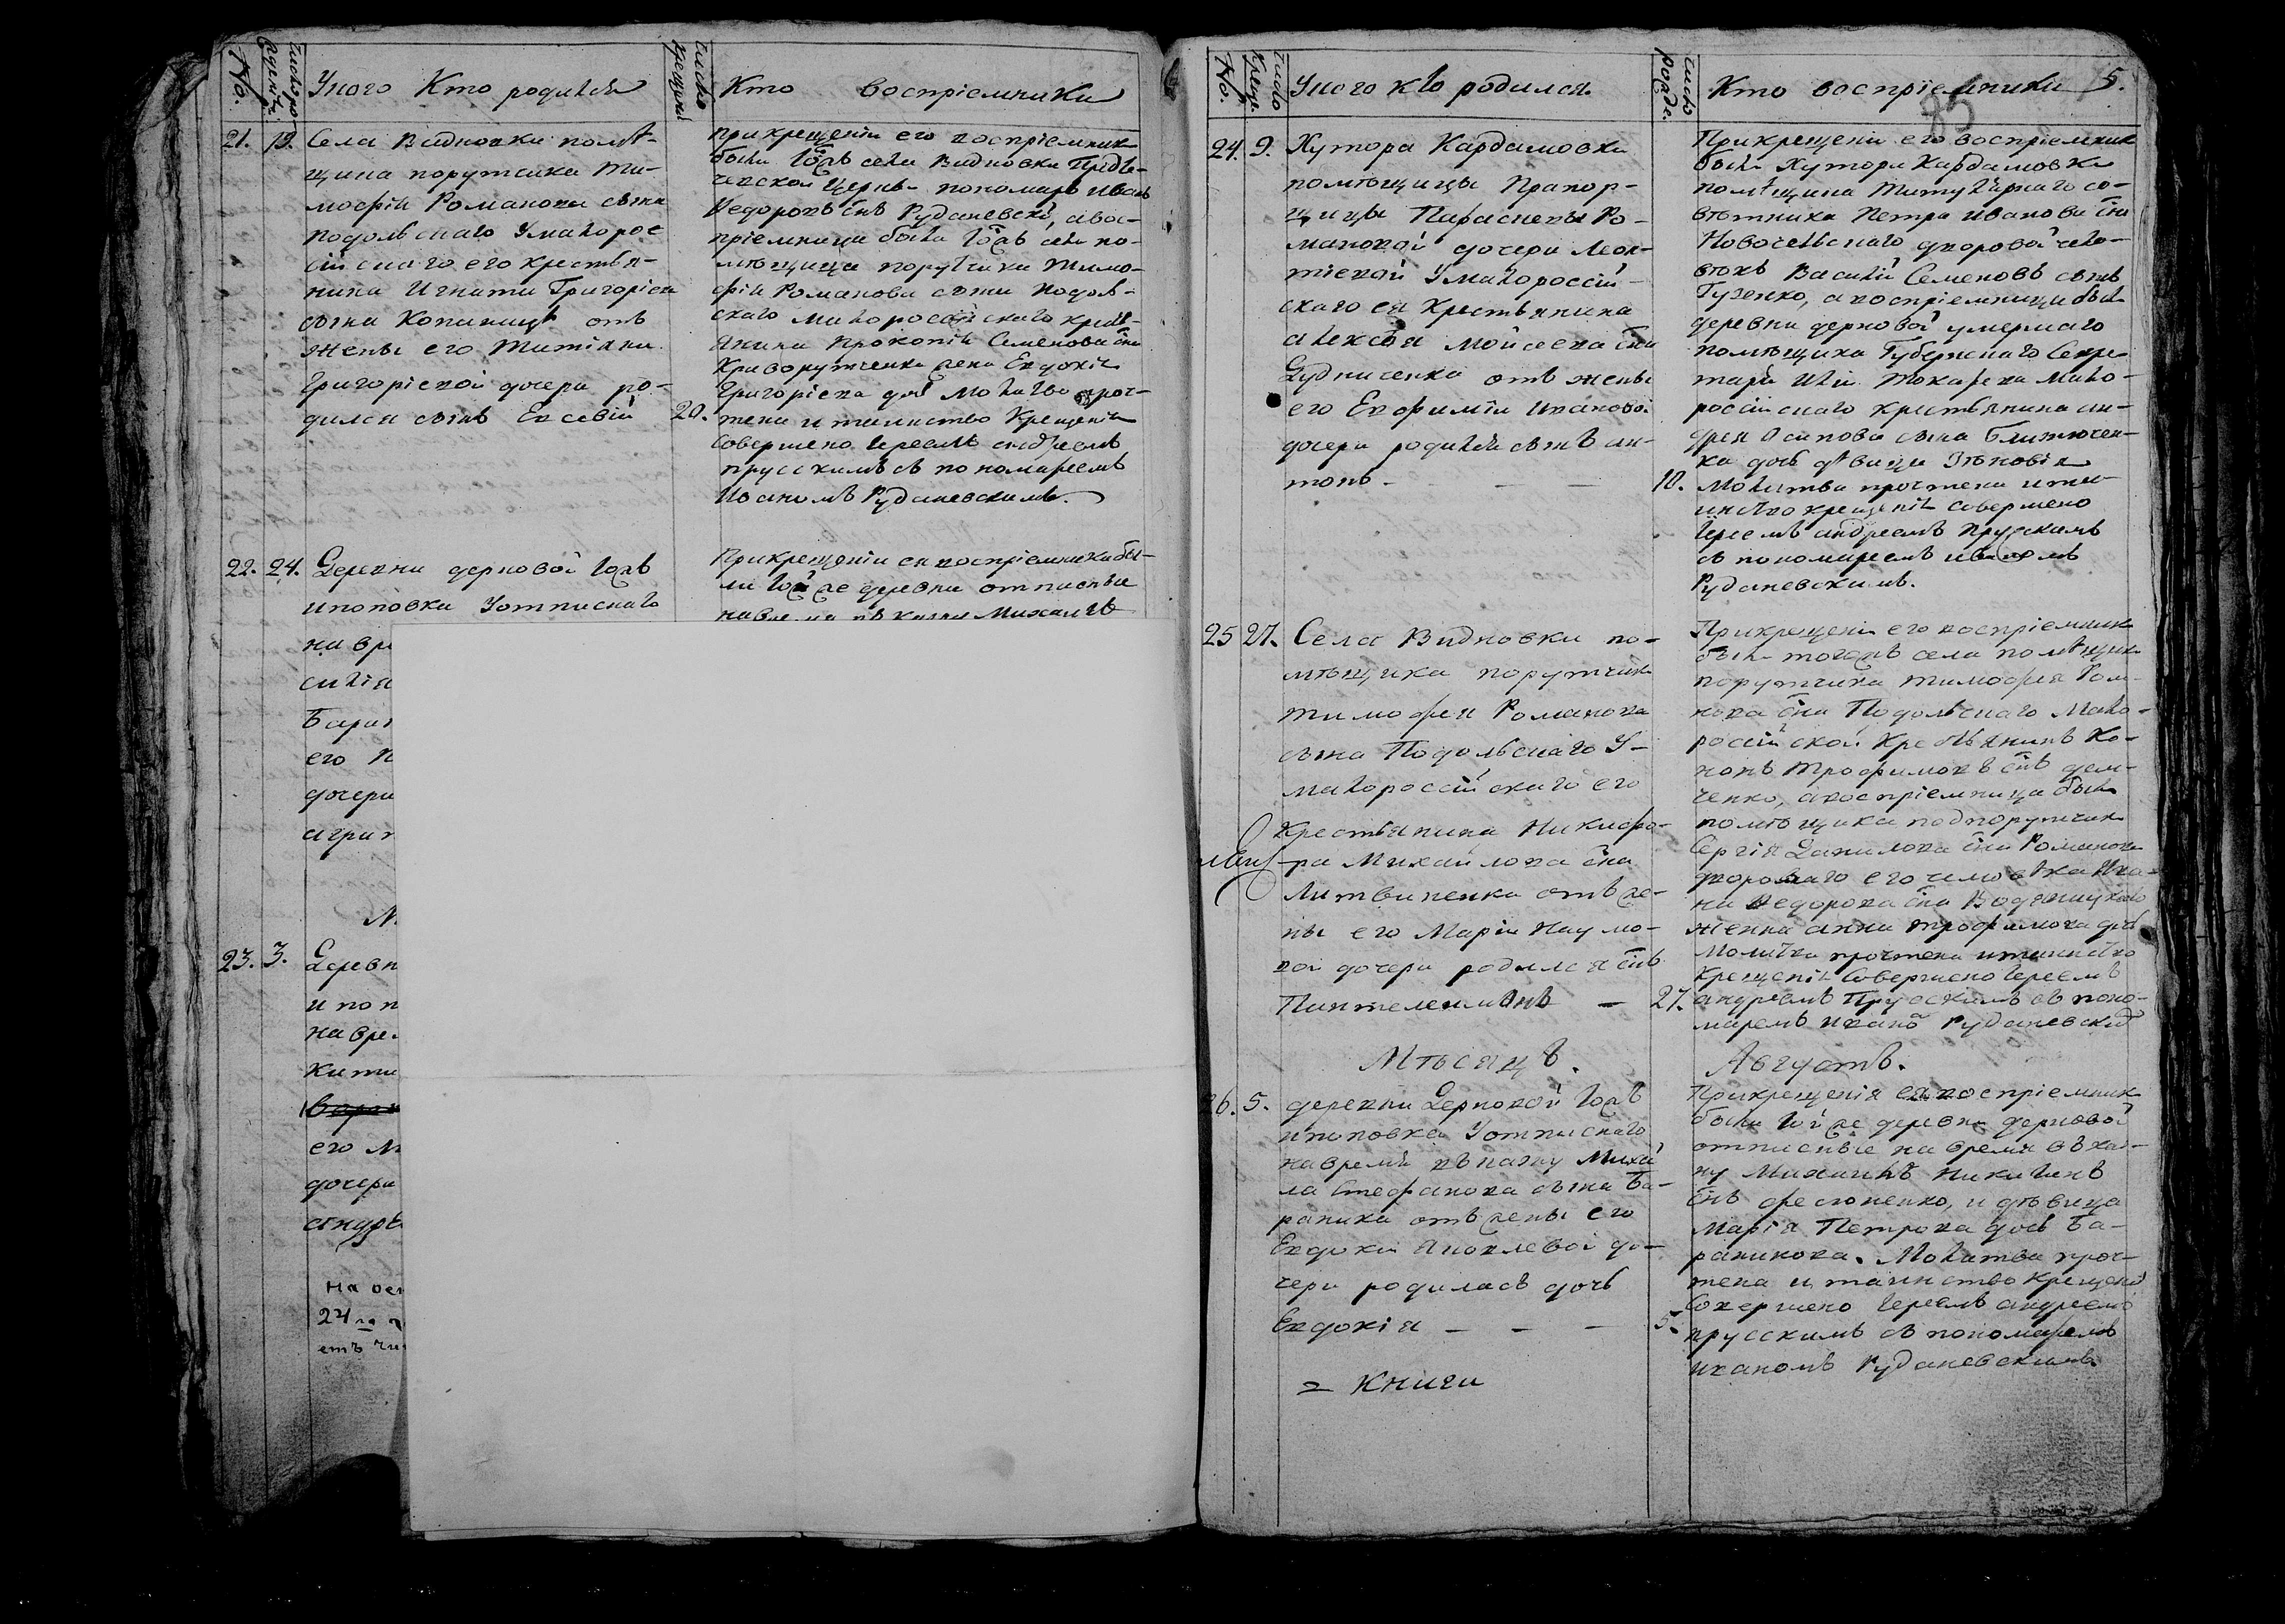 No.
число рожден.
У кого Кто родился
число крещения
Кто воспріемники
21. 19. Села Видновки помѣ-
щика порутчика Ти-
мофія Романова сына
Подольскаго У малорос
сійскаго его крестья-
нина Игнатия Григоріева
сына Копаницы отъ
жены его Татіяны
Григоріевой дочери ро-
дился сынъ Евсевій
20.
При крещеніи его воспріемник
былъ тояжъ села Видновки Предте-
чевской Церкви пономарь Иванъ
Федоровъ снъ Рудановскій, а вос-
пріемница была тогожъ села по-
мѣщика порутчика Тимо-
фія Романова сына Подоль-
скаго малороссійскаго крест-
янина Прокопія Семенова сна
Криворутченка жена Евдокія
Григоріева дочь Молитва проч-
тена и таинство Крещенія
совершено Іереемъ Андреемъ
Прусскимъ съ пономаремъ
Иваномъ Рудановскимъ.
22. 24. Деревни Дерновой тожъ
и поповка У отписнаго
на вре
силія
Бара
его
дочери
агрип
При крещеніи ея воспріемники бы-
ли той же деревни отписные
на время въ казну Михаилъ
М
23. 3. Деревн
и поп
на вре
кити
его М
дочери
На ос
24 го
етъ чи
No.
число крещ.
У кого кто родился
число рожде.
Кто воспріемники 5.
85
24. 9. Хутора Кардашовки
помѣщицы Прапор-
щицы Параскевы Ро-
мановой дочери Леон-
тіевой У малороссій-
скаго ея Крестьянина
Алексѣя Мойсеева сна
Дудниченка отъ жены
его Евфиміи Ивановой
дочери родился сынъ Ан-
тонъ
10.
При крещеніи его воспріемник
былъ Хутора Кардашовки
помѣщика Титулярнаго со-
вѣтника Петра Иванова сна
Новосельскаго дворовой чело-
вѣкъ Василій Семеновъ сынъ
Гузенко, а воспріемница была
деревни Дерновой умершаго
помѣщика Губернскаго Секре-
таря Токарева мало-
россійскаго крестьянина Ан-
дрея Осипова сына
ка дочь дѣвица Зѣновія
Молитва прочтена и та-
инство крещенія совершено
Іереемъ Андреемъ Прусскимъ
съ пономаремъ Иваномъ
Рудановскимъ.
25 27. Села Видновки по-
мѣщика порутчика
Тимофея Романова
сына Подольскаго У
малороссійскаго его
Крестьянина Никифо-
ра Михайлова сна
Литвиненка отъ же-
ны его Маріи Наумо-
вой дочери родился снъ
Пантелеимонъ
27.
При крещеніи его воспріемник
былъ тогожъ села помѣщика
порутчика Тимофея Рома-
нова сна Подольскаго Мало-
россійской Крестьянинъ Ко-
нонъ Трофимовъ снъ Дем-
ченко, а воспріемница была
помѣщика подпорутчика
Сергія Данилова сна Романова
двороваго его человѣка Ива-
на Федорова сна Водяницкаго
женка Анна Трофимова дочь
Молитва прочтена и таинство
Крещенія Совершено Іереемъ
Андреемъ Прусскимъ съ поно-
маремъ Иваномъ Рудановскимъ
Мѣсяцъ. Августъ.
26. 5. деревни Дерновой тожъ
и поповка У отписнаго
на время въ казну Михай
ла Стефанова сына Ба-
раника отъ жены его
Евдокіи Яковлевой до-
чери родилась дочь
Евдокія
5.
При крещенія ея воспріемник
былъ той же деревни Дерновой
отписные на время въ каз-
ну Михаилъ Никитинъ
снъ Фесюненко, и дѣвица
Марія Петрова дочь Ба-
раникова. Молитва проч-
тена и таинство Крещенія
Совершено Іереемъ Андреемъ
Прусскимъ съ пономаремъ
Иваномъ Рудановскимъ
Книги